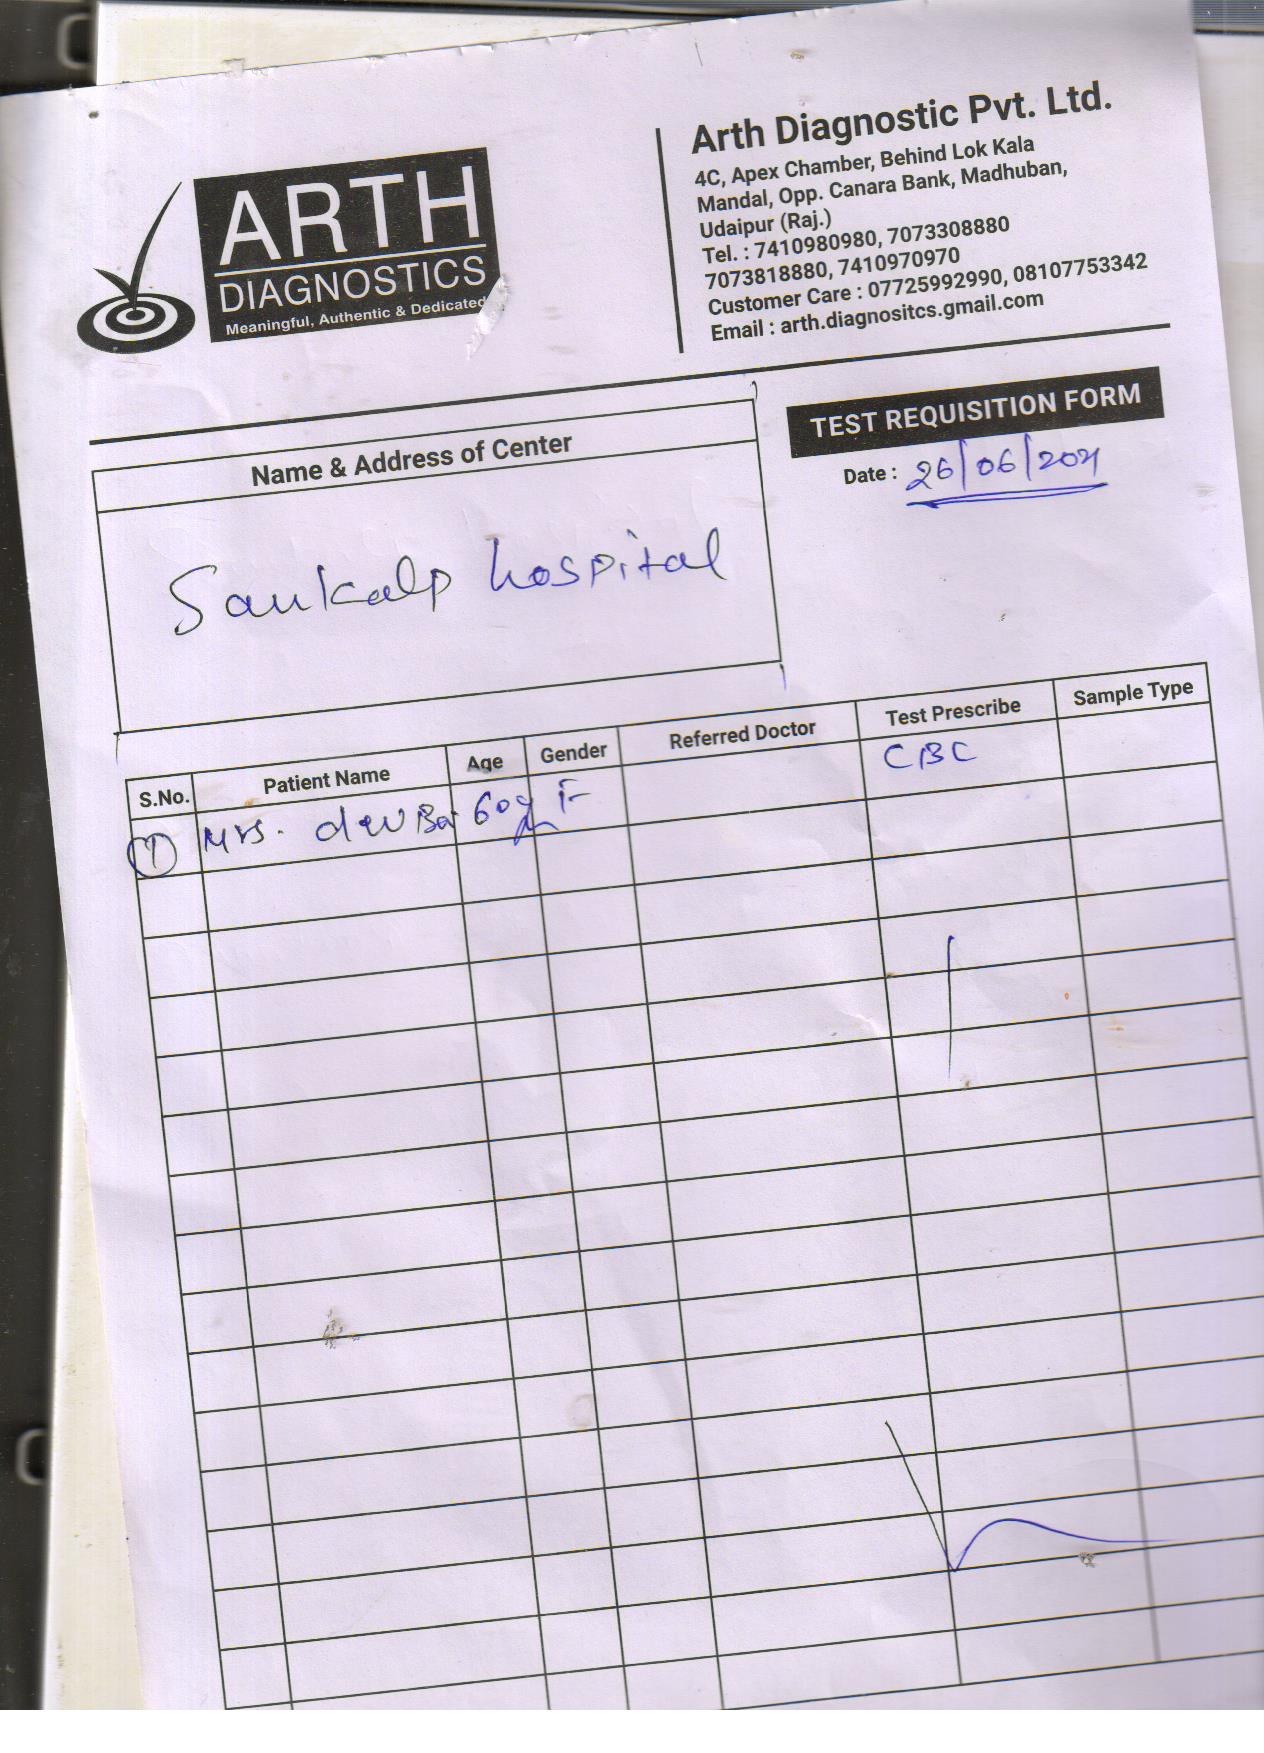 ARTH
DIAGNOSTICS
Meaningful, Authentic & Dedicated
Arth Diagnostic Pvt. Ltd.
4C, Apex Chamber, Behind Lok Kala
Mandal, Opp. Canara Bank, Madhuban,
Udaipur (Raj.)
Tel. : 7410980980, 7073308880
7073818880, 7410970970
Customer Care : 07725992990, 08107753342
Email : arth.diagnositcs.gmail.com
TEST REQUISITION FORM
Date : 26/06/2021
Name & Address of Center
Sankalp hospital
S.No. Patient Name Age Gender Referred Doctor Test Prescribe Sample Type
1 Mrs. dew Bai 60y F CBC